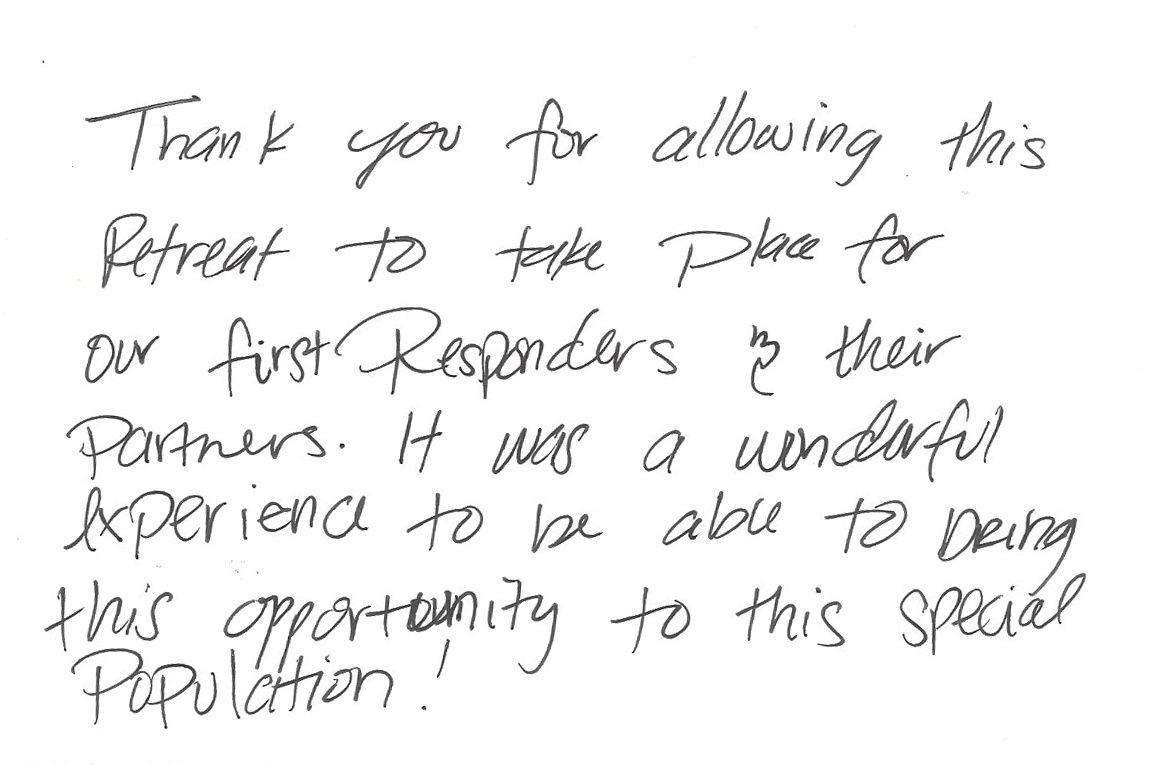 Thank you for allowing this
Retreat to take place for
our first Responders & their
Partners. It was a wonderful
experience to be able to bring
this opportunity to this special
Population!